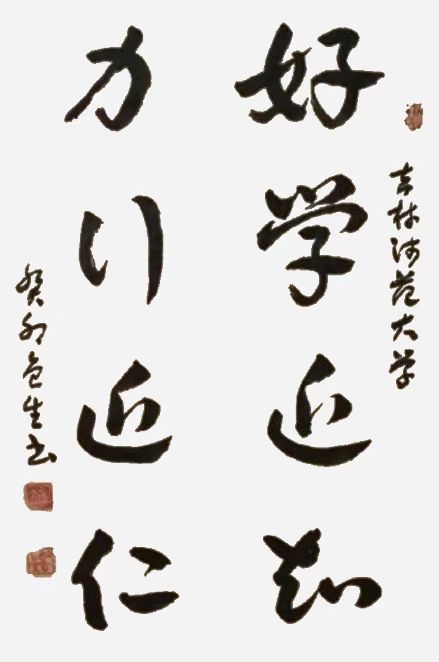 吉林师范大学
好学近知
力行近仁
癸卯生书